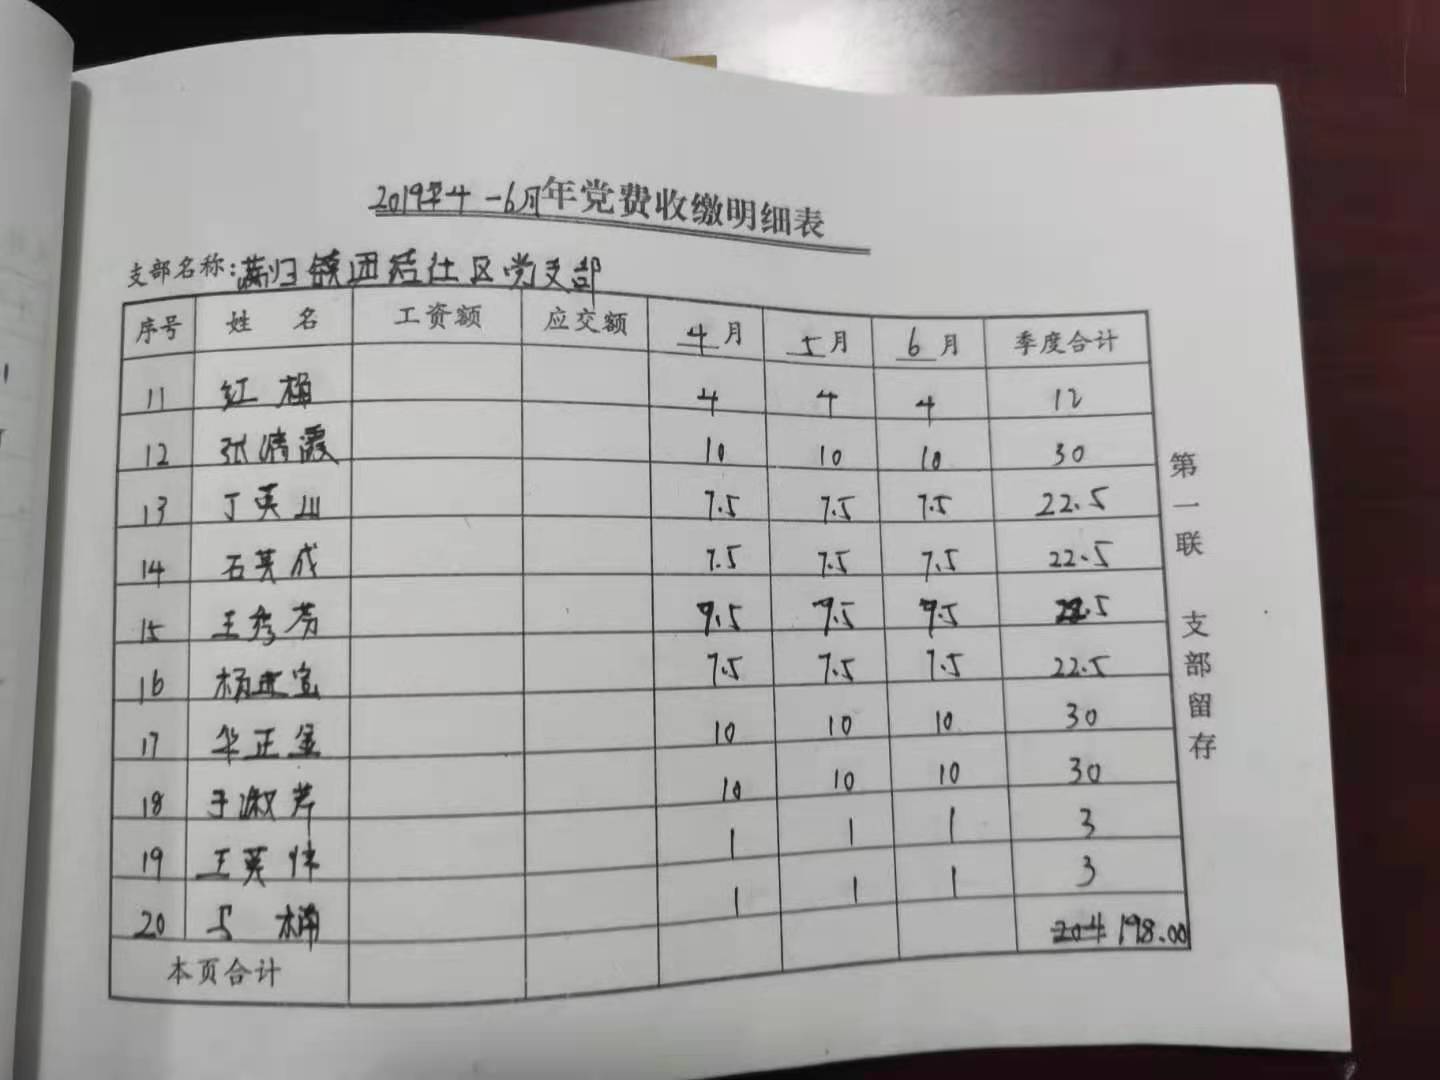 2019年4-6月年党费收缴明细表
支部名称:蒲归镇团结社区党支部
序号 姓名 工资额 应交额 4月 5月 6月 季度合计
11 红梅 4 4 4 12
12 张清霞 10 10 10 30
13 丁英山 7.5 7.5 7.5 22.5
14 石英成 7.5 7.5 7.5 22.5
15 王秀芳 7.5 7.5 7.5 22.5
16 杨宝 7.5 7.5 7.5 22.5
17 华正金 10 10 10 30
18 于淑芹 10 10 10 30
19 王英 1 1 1 3
20 马楠 1 1 1 3
本页合计 204 198.00
第一联 支部留存